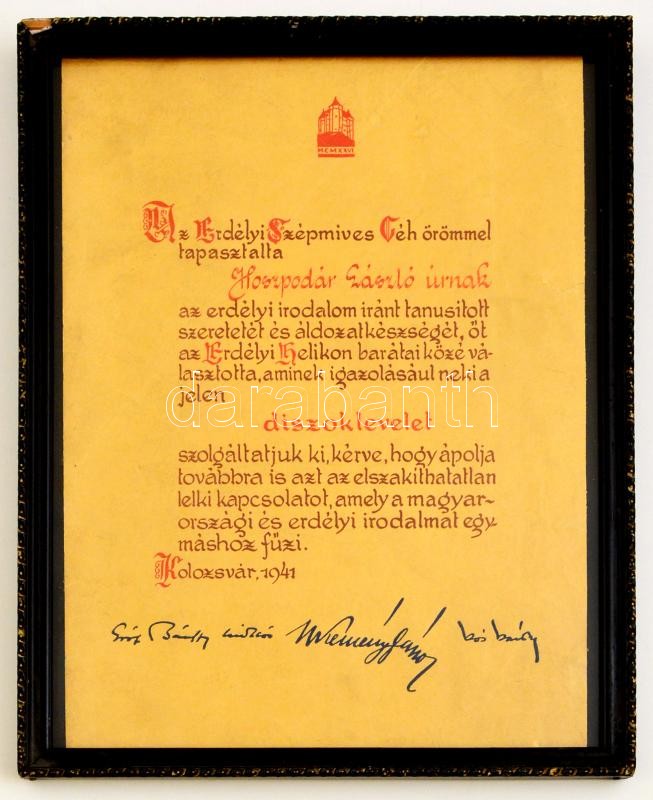 MCMXXVI
Az Erdélyi Szépmives Céh örömmel
tapasztalta
Hoszpodár László úrnak
az erdélyi irodalom iránt tanusitott
szeretetét és áldozatkészségét, őt
az Erdélyi Helikon barátai közé vá-
lasztotta, aminek igazolásául neki a
jelen
diszoklevelet
szolgáltatjuk ki, kérve, hogy ápolja
továbbra is azt az elszakithatatlan
lelki kapcsolatot, amely a magyar-
országi és erdélyi irodalmat egy-
máshoz fűzi.
Kolozsvár, 1941
Gróf Bánffy Miklós Kemény János Kós Károly
darabanth